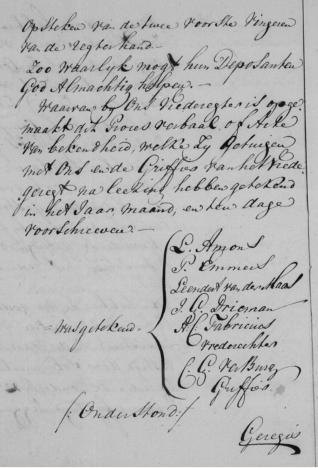 Opsteken van de twee voorste vingeren
van de regterhand.—
Zoo waarlijk mogt hun Deposanten
God Almachtig helpen.—
Waarvan by Ons Vrederegter is opge-
maakt dit Proces verbaal of Acte
van bekentheid, welke Zy Getuigen
met Ons en de Griffier van het Vrede-
geregt na leezing hebben getekend
in het Jaar, maand, en ten dage
voorschreeven.—
L. Amons
P. Emmers
Leendert van der Maas
J. C. Drioman
A C Fabricius
vrederechter
was getekend.
C. G. Verburg
Griffier.
/: Onderstond:/
Geregis